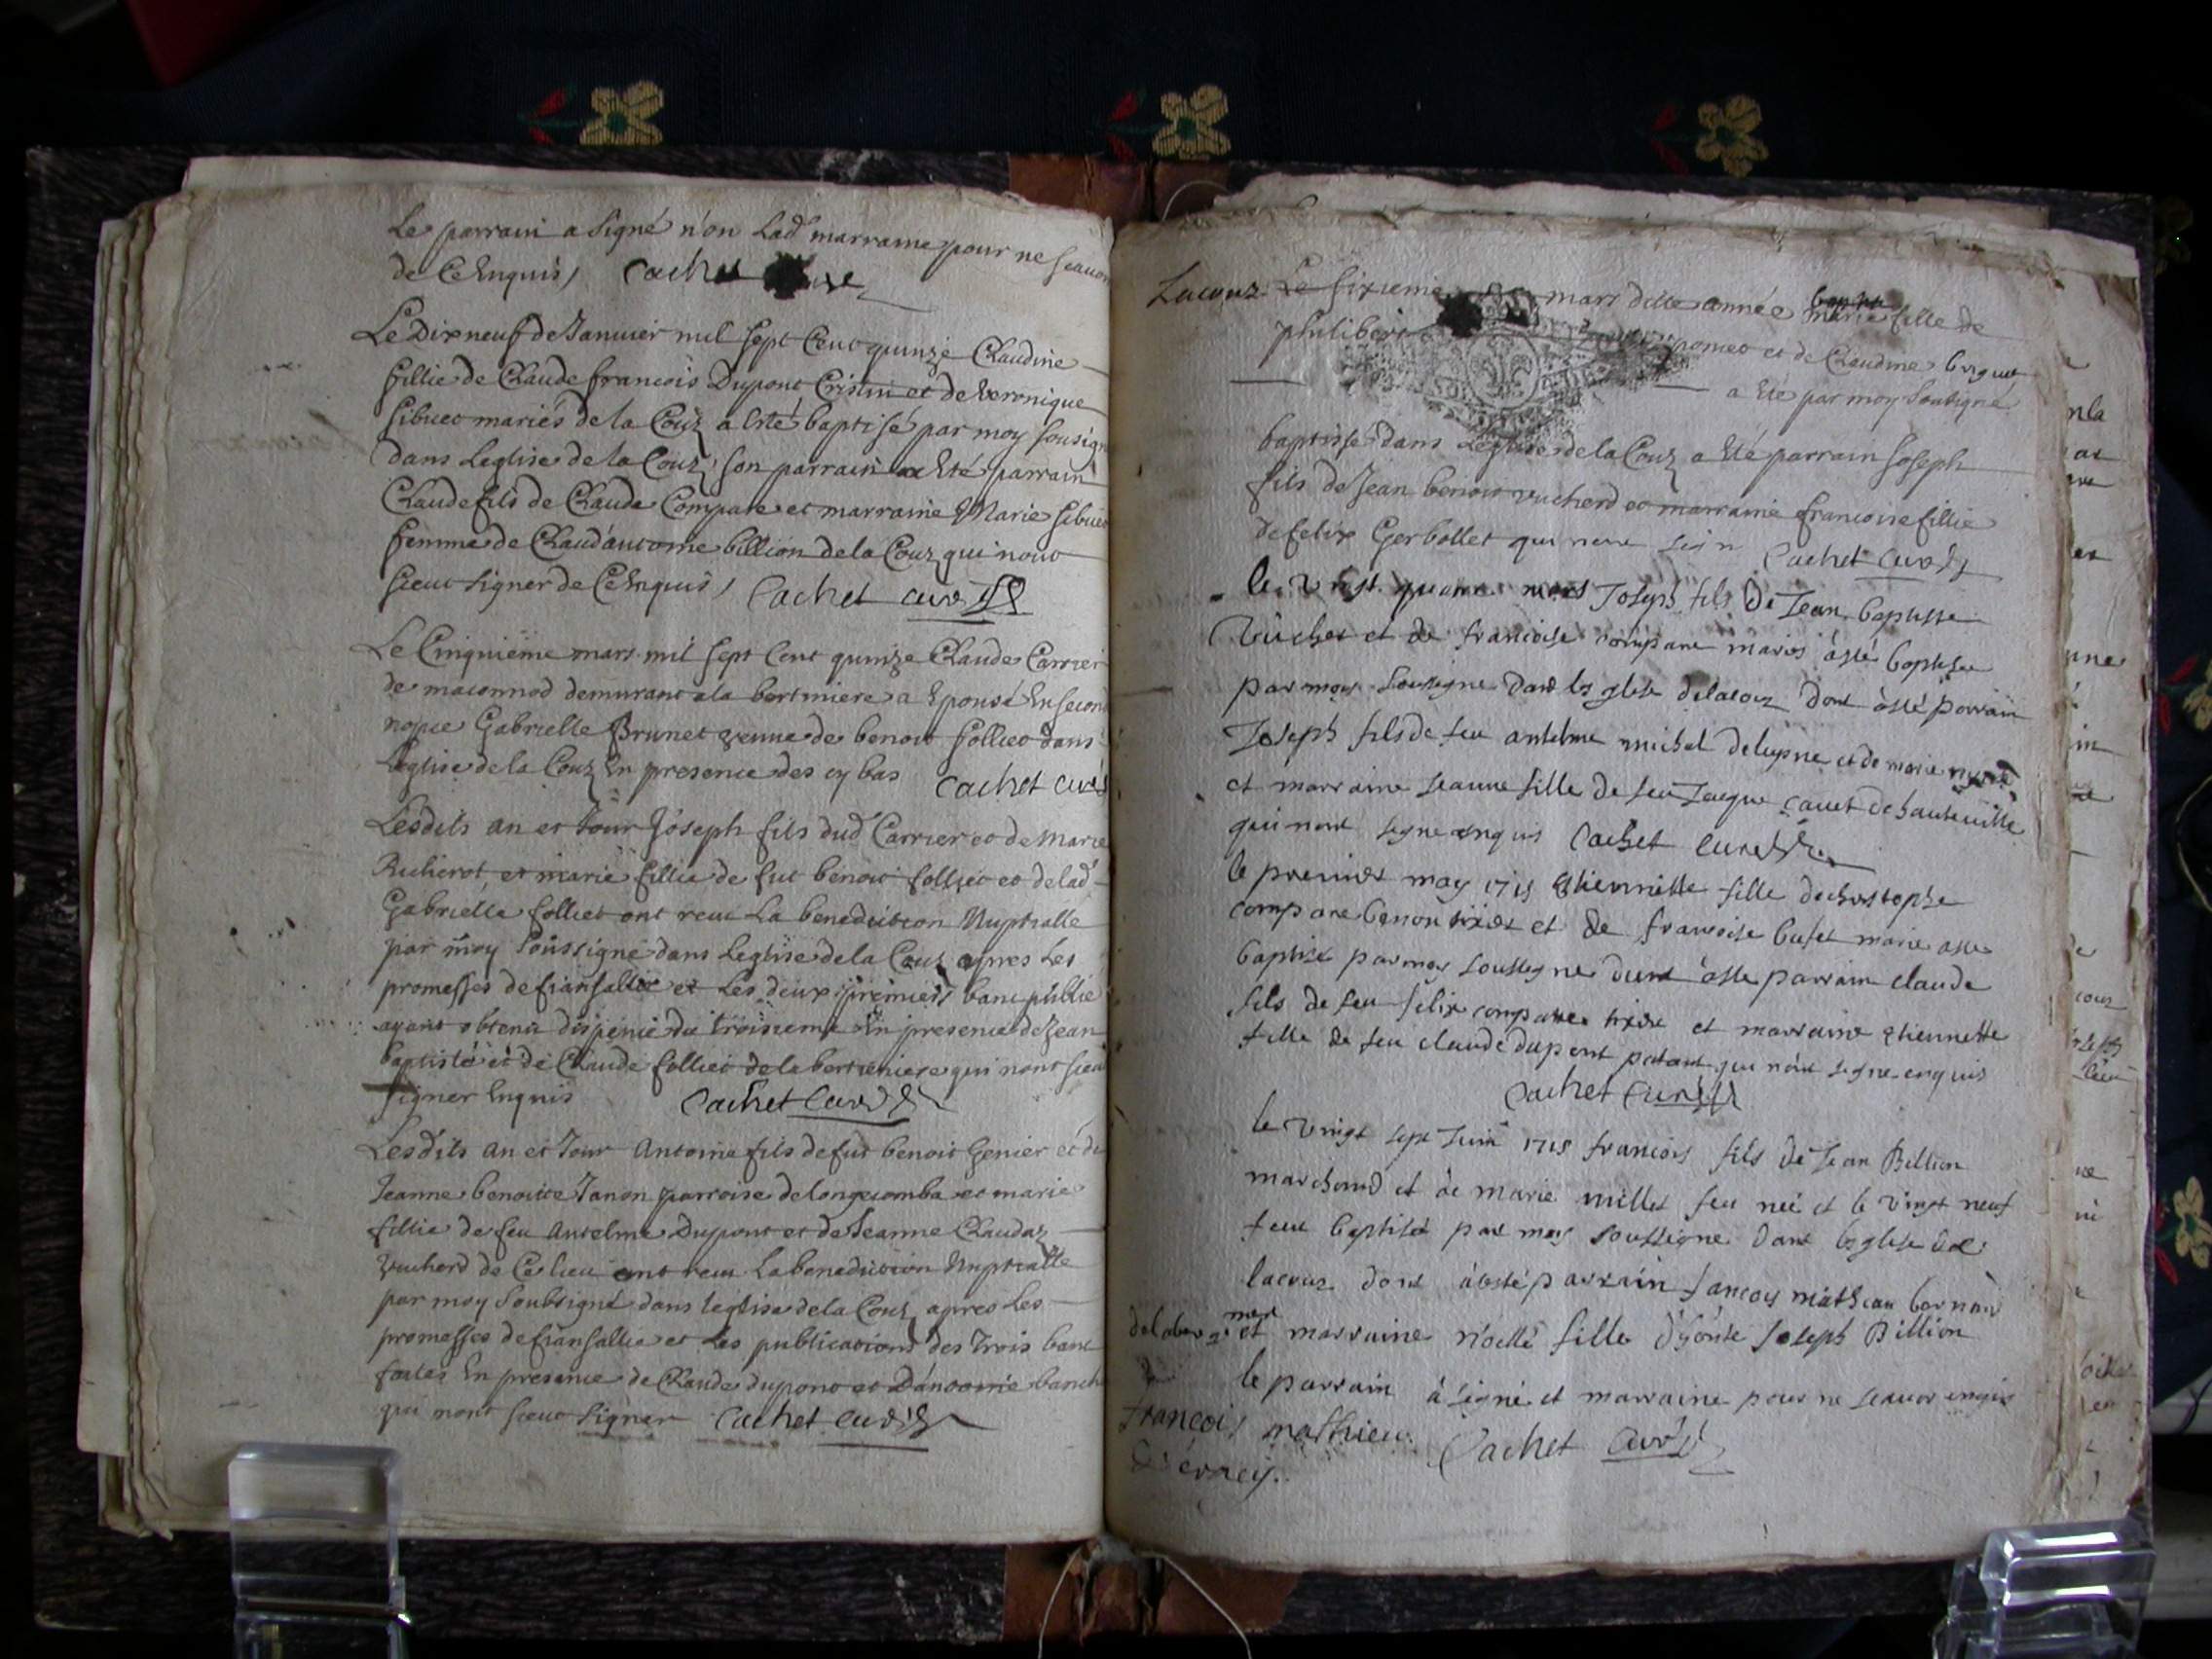 Le parrain a signé n'on Lad marraine pour ne scauoir
de Ce Enquis / Cachet
Le Dix neuf de Januier mil sept Cent quinze Claudine
fillie de Claude francois Dupont Cristin et de veronique
sibuet mariés de la Couz a Esté baptisé par moy sousigné
dans Leglise de la Couz, son parrain a Eté parrain
Claude fils de Claude Compare et marraine Marie sibuet
femme de Claud'antoine billion de la Couz qui n'ont
sceut signer de Ce Enquis / Cachet curé
Le Cinquième mars mil sept Cent quinze Claude Carrier
de maconnod demurant a la bertiniere a Epousé En second
nopce Gabrielle Brunet veuue de benoit folliet dans
Leglise de la Couz En presence des cy bas Cachet curé
Lesdits an et Jour Joseph fils dud Carrier et de Marie
et marie fillie de fut benoit folliet et de lad
Gabrielle folliet ont receu La benediction Nuptialle
par moy soussigné dans Leglise de la Couz apres Les
promesses de fiansallie et Les deux premiers banc publié
ayant obtenu dispense du troisieme En presence de Jean
baptiste et de Claude folliet de la bertiniere qui n'ont sceu
signer Enquis Cachet Curé
Lesdits an et Jour Antoine fils de fut benoit Genier et de
Jeanne benoitte Janon parroise de longecomba et marie
fillie de feu Antelme Dupont et de Jeanne Claudaz
vucherd de Ce lieu ont receu La benediction Nuptialle
par moy Soubsigné dans leglise de la Couz apres Les
promesses de fiansallie et Les publications des trois banc
faites En presence de Claude dupont et D'antoine
qui n'ont sceut signer Cachet curé
Lacouz Le sixieme mars ditte année marie fille de
philibert et de Claudine
a Eté par moy Soubsigné
baptisse dans Leglise de la Couz a Eté parrain Joseph
fils de Jean benoit vucherd et marraine francoise fillie
de felix Gerbollet qui Cachet Curé
le mars Joseph fils de Jean baptiste
Vuchet et de francoise compare mariés a esté baptisee
par moy soussigne dans leglise delacouz dont a esté parrain
Joseph fils de feu antelme michel deluysne et de marie
et marraine Jeanne fille de feu Jacque cauet de hauteuille
qui n'ont signe enquis Cachet Curé
le premier may 1715 Etiennette fille de christophe
compare et de francoise bufet marie a esté
baptisé par moy soussigne dont a esté parrain claude
fils de feu felix compare tixier et marraine Etiennette
fille de feu claude dupont patant qui n'ont signe enquis
Cachet Curé
le vingt sept Juin 1715 francois fils de Jean Billion
marchand et de marie millet feu neé et le vingt neuf
feut baptisé par moy soussigne dans leglise de
lacouz dont a esté parrain francoy mathieu
et marraine n'oelle fille d'honte Joseph Billion
le parrain a signé et marraine pour ne scauoir enquis
francois mathieu. Cachet Curé